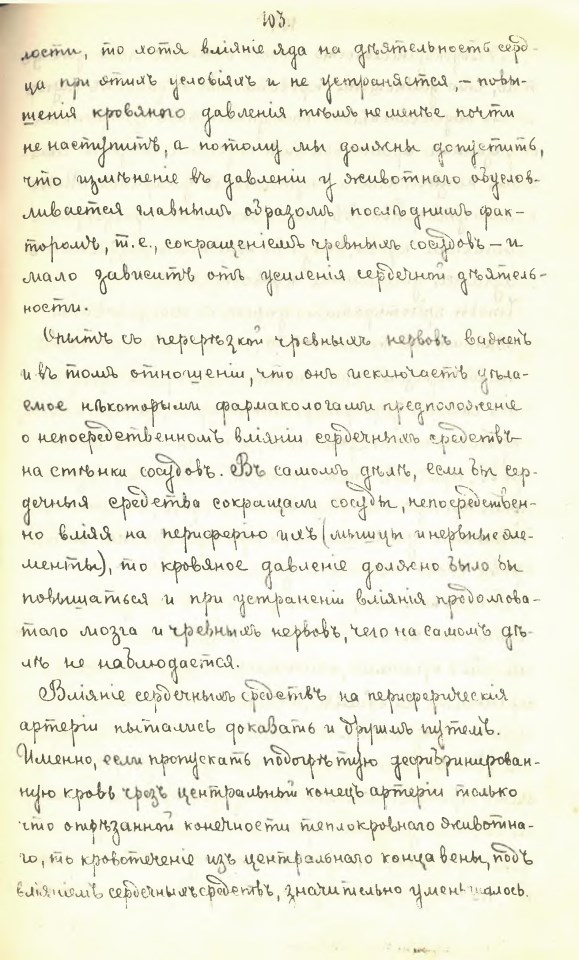 103.
лости, то хотя вліяніе яда на дѣятельность серд-
ца при этихъ условіяхъ и не устраняется, — повы-
шенія кровяного давленія тѣмъ не менѣе почти
не наступитъ, а потому мы должны допустить,
что измѣненіе въ давленіи у животнаго обуслов-
ливается главнымъ образомъ послѣднимъ фак-
торомъ, т.е., сокращеніемъ чревныхъ сосудовъ — и
мало зависитъ отъ усиленія сердечной дѣятель-
ности.
Опытъ съ перерѣзкой чревныхъ нервовъ важенъ
и въ томъ отношеніи, что онъ исключаетъ дѣла-
емое нѣкоторыми фармакологами предположеніе
о непосредственномъ вліяніи сердечныхъ средствъ
на стѣнки сосудовъ. Въ самомъ дѣлѣ, если бы сер-
дечныя средства сокращали сосуды, непосредствен-
но вліяя на периферію ихъ (мышцы и нервные эле-
менты), то кровяное давленіе должно было бы
повышаться и при устраненіи вліянія продолгова-
таго мозга и чревныхъ нервовъ, чего на самомъ дѣ-
лѣ не наблюдается.
Вліяніе сердечныхъ средствъ на периферическія
артеріи пытались доказать и другимъ путемъ.
Именно, если пропускать подогрѣтую дефибринирован-
ную кровь чрезъ центральный конецъ артеріи только
что отрѣзанной конечности теплокровнаго животна-
го, то кровотеченіе изъ центральнаго конца вены, подъ
вліяніемъ сердечныхъ средствъ, значительно уменьшалось.